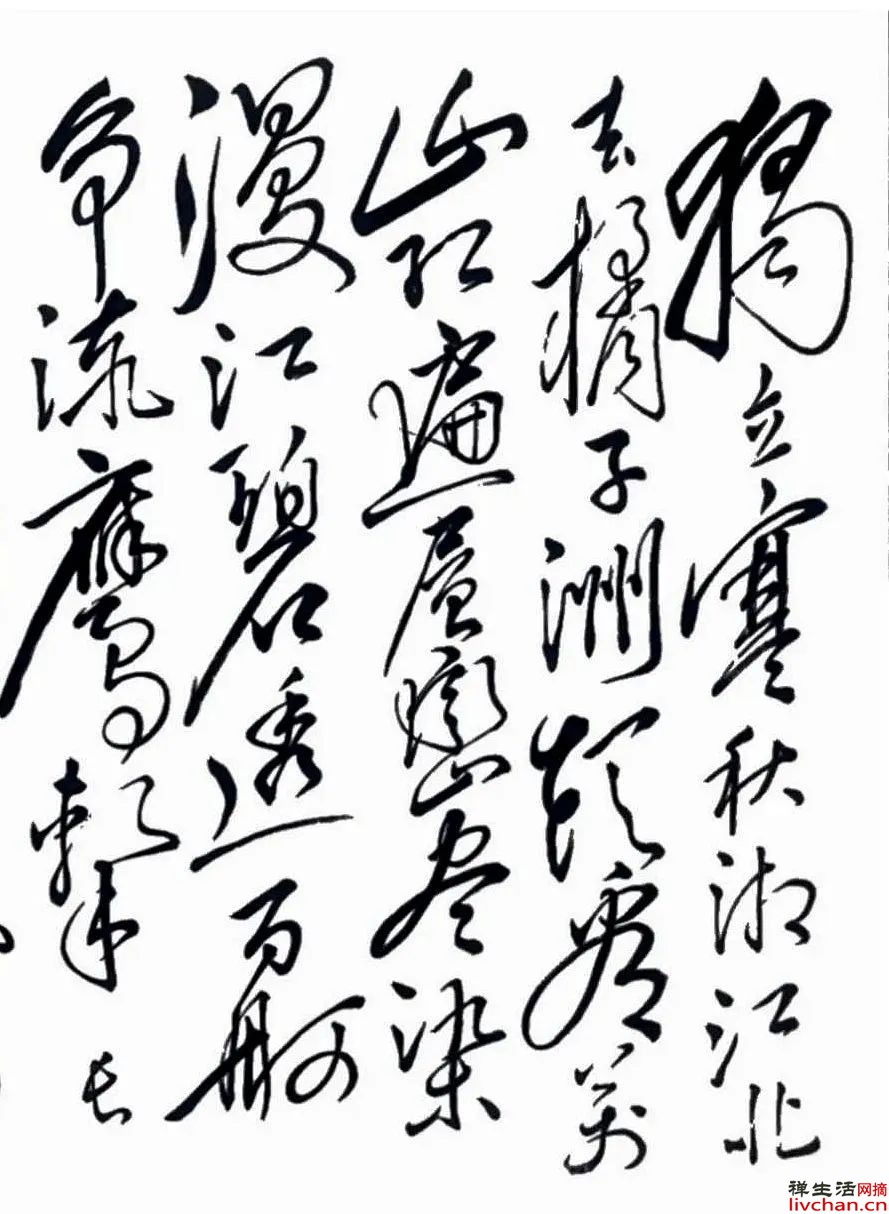 獨立寒秋湘江北
去橘子洲頭看萬
山红遍層巒尽染
漫江碧透百舸
争流鷹擊长
祥生活网摘
livchan.cn